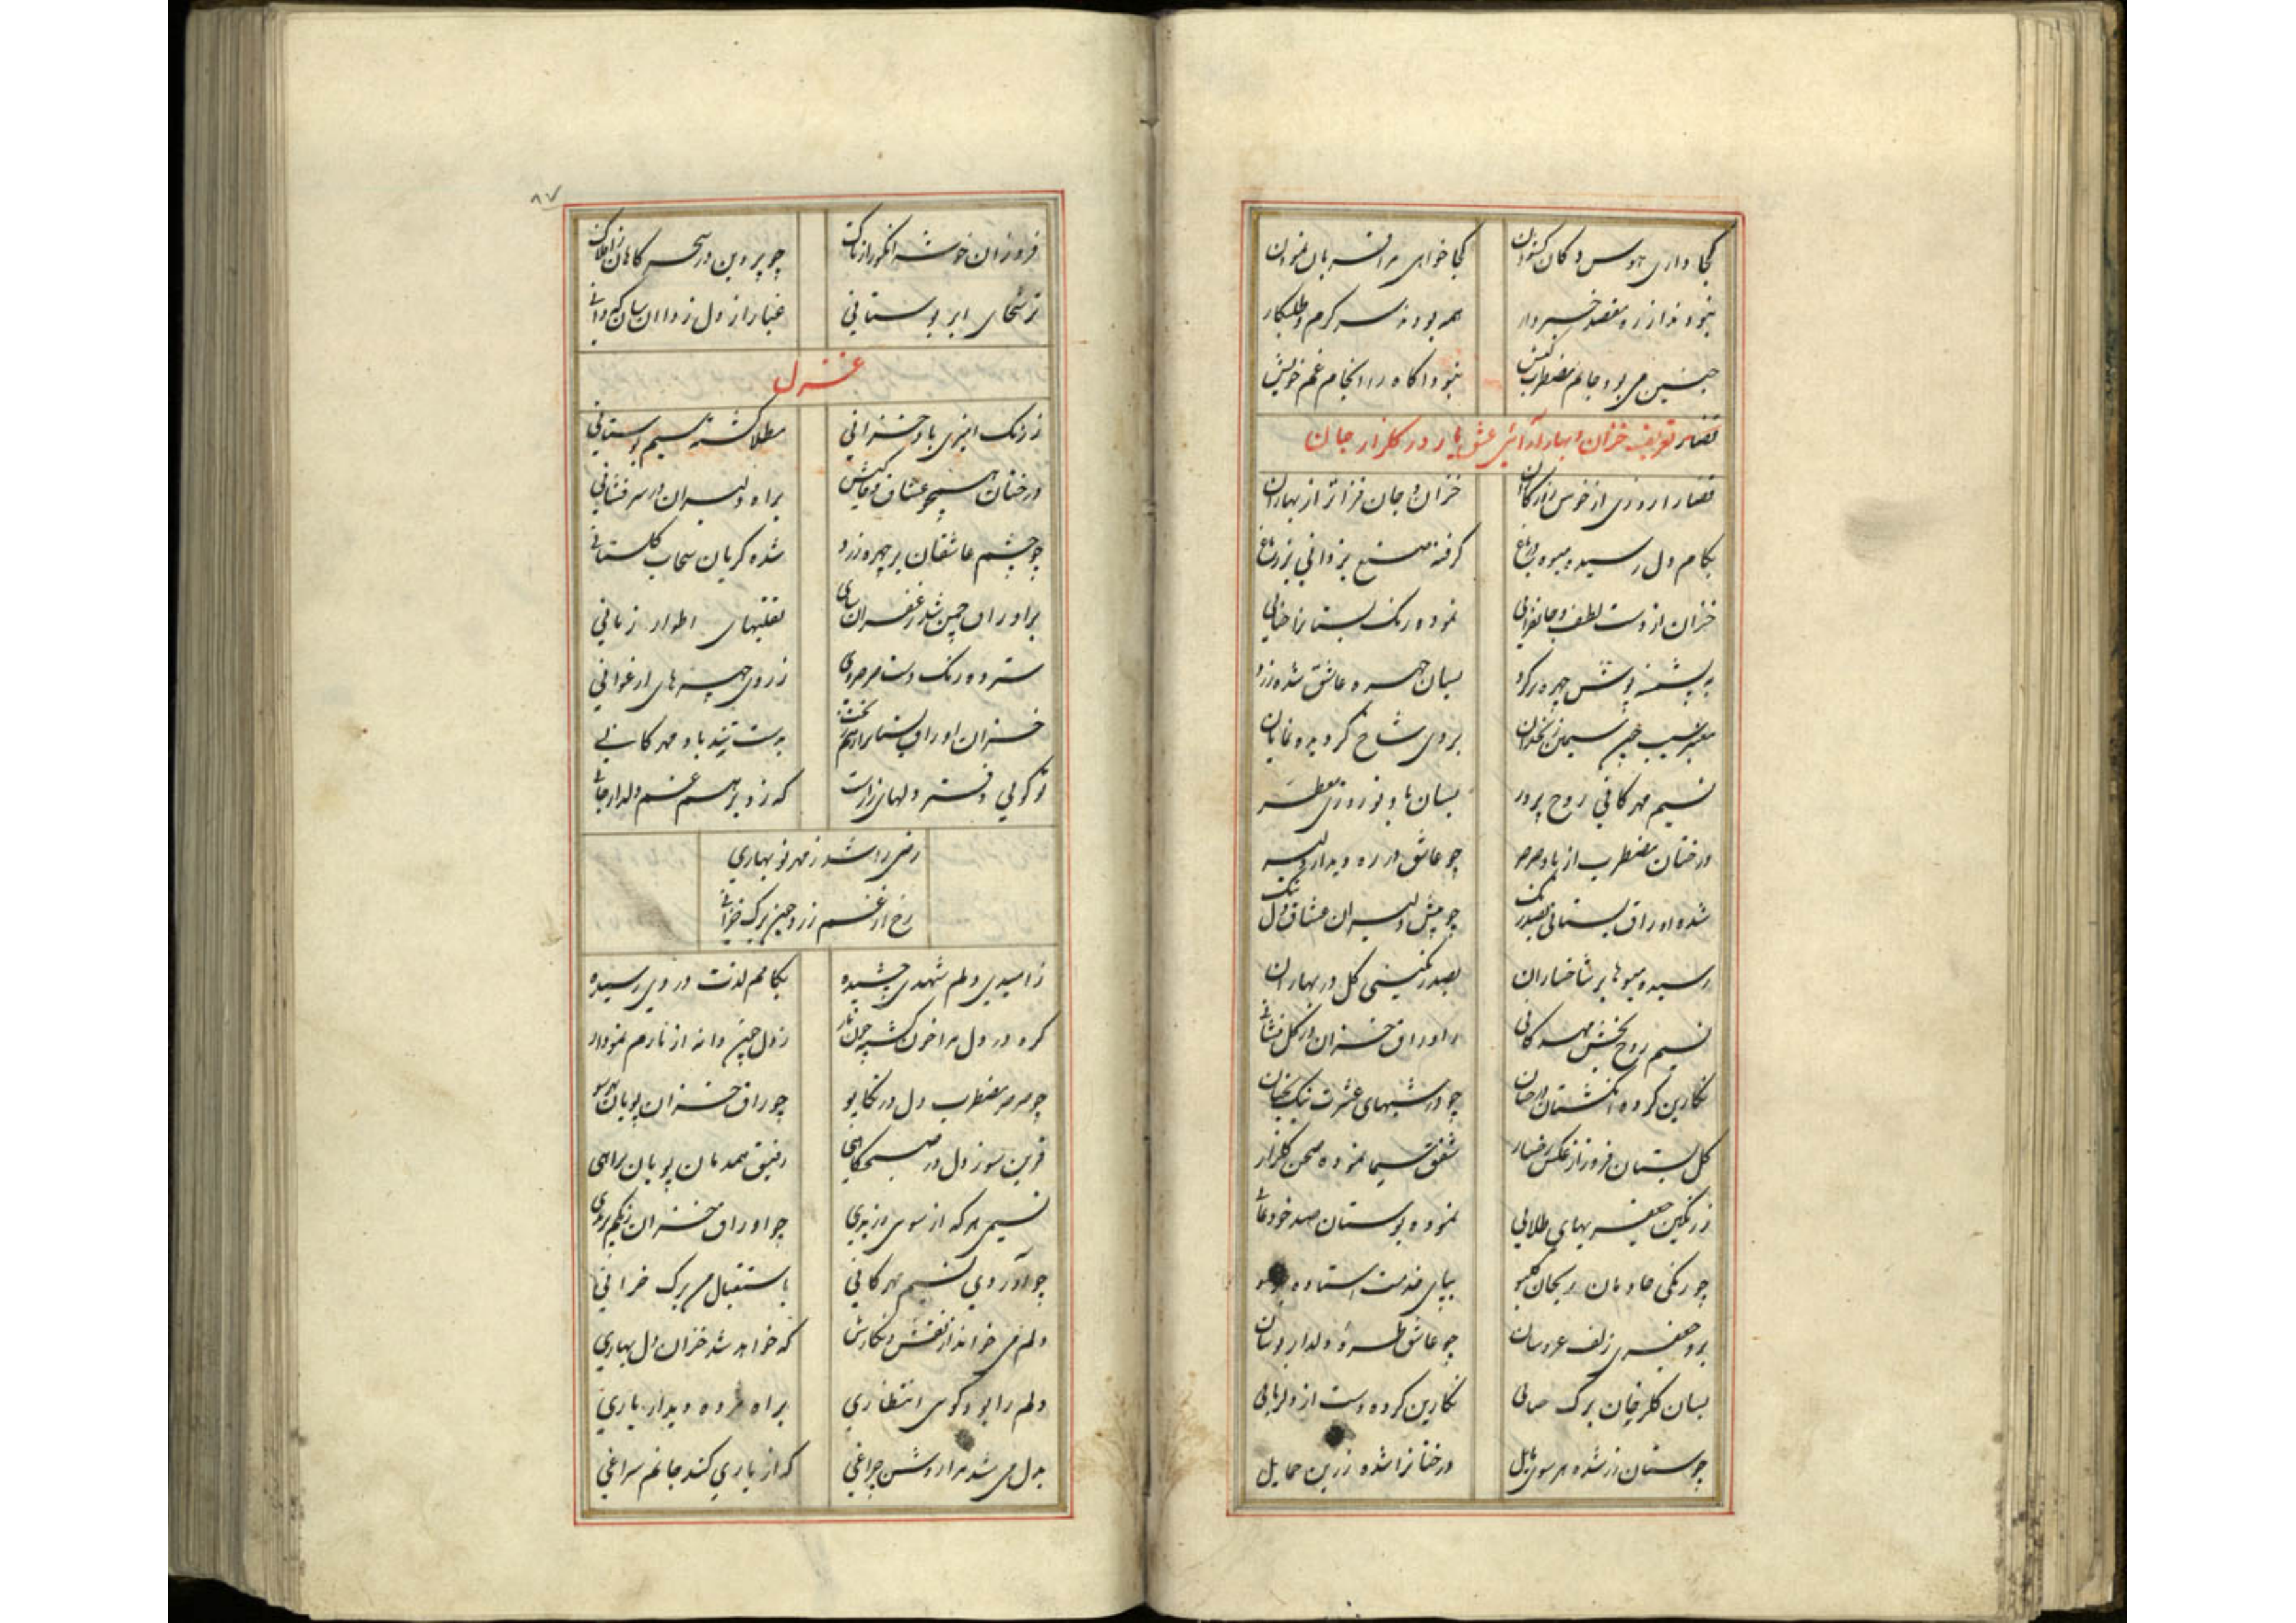 کجا داری هوس دکان کشودن
کجا خواهی مرا قربان نمودن
نبودند از ره مقصد خبردار
همه بودند سرگرم طلبکار
چنین می بود جانم مضطرب کیش
نبود آگاه از انجام غم خویش
تعریف خزان و بهار آرائی عشق یار در گلزار جان
قضا را روزی از خوش روزگاران
خزان و جان فزاتر از بهاران
بکام دل رسیده میوه باغ
گرفته صنع یزدانی
خزان از دست لطف و جانفزائی
نموده رنگ بستانرا حنائی
چهره زرد
بسان چهره عاشق شده زرد
معنبر سیب چون سیمین زنخدان
بروی شاخ گردیده نمایان
نسیم مهرکانی روح پرور
بسان باد نوروزی معطر
درختان مضطرب از باد صرصر
چو عاشق در ره دیدار دلبر
شده اوراق بستانی بصد رنگ
چو پیش دلبران عشاق دل تنگ
رسیده میوها بر شاخساران
بصد رنگینی گل در بهاران
نسیم روح بخش مهرکانی
ز اوراق خزان در گل فشانی
نگارین کرده انگشتان درختان
چو در شبهای عشرت نیک بختان
گل بستان فروزان از عکس رخسار
شفق سیما نموده صحن گلزار
ز رنگین جعفریهای طلائی
نموده بوستان صد خودنمائی
چو زنگی خادمان ریحان گیسو
بپای خدمت استاده
زلف عروسان
چو عاشق طره دلدار بوسان
بسان گلرخان برگ
نگارین کرده دست از دلربائی
چو مستان زر شده هر سوی مایل
درختانرا شده زرین حمایل
۸۷
فروزان خوشه انگور از تاک
چو پروین در سحر کاهان ز افلاک
ترشحهای ابر بوستانی
غبار از دل زدا
غزل
ز رنگ آمیزی باد خزانی
مطلا گشته سیم بوستانی
درختان همچو عشاق وفا کیش
براه دلبران در سر فشانی
چو چشم عاشقان بر چهره زرد
شده گریان سحاب گلستانی
بر اوراق چمن شد زعفران سای
تقلبهای اطوار زمانی
سترده رنگ دست صرصر دی
ز روی چهرهای ارغوانی
خزان اوراق بستانرا ز هم ریخت
بدست تند باد مهرکانی
تو گوئی دفتر دلهای زارست
که زد برهم غم دلدار جانی
رضی را شد ز مهر نوبهاری
رخ از غم زرد چون برگ خزانی
ز امیدی دلم شهدی چشیده
بکامم لذت دردی رسیده
گره در دل مرا خون گشته چون نار
ز دل چون دانه از نارم نمودار
چو صرصر مضطرب دل در تکاپو
چو اوراق خزان پویان بهر سو
قرین سوز دل در صبحگاهی
رفیق همدمان پویان براهی
نسیمی هر که از سوی وزیدی
چو اوراق خزان رنگم پریدی
چو آوردی نسیم مهرکانی
باستقبال من برگ خزانی
دلم می خواند از نقش و نگارش
که خواهد شد خزان دل بهاری
دلم را بود گوی انتظاری
براه مژده دیدار یاری
بدل می شد مرا روشن چراغی
که از یاری کند جانم سراغی